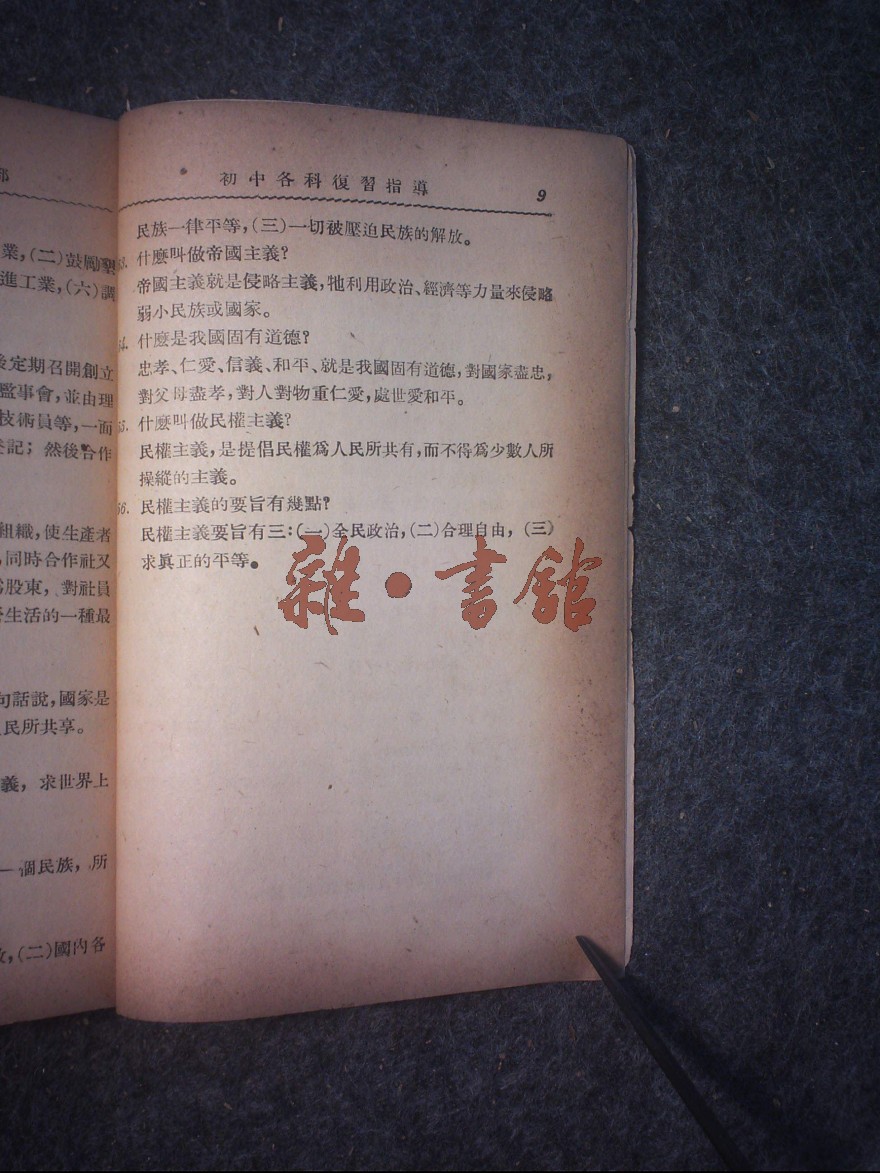 部
業,(二)鼓勵墾
進工業,(六)調
後定期召開創立
監事會,並由理
技術員等,一面
登記; 然後合作
組織,使生產者
,同時合作社又
股東, 對社員
生活的一種最
句話說,國家是
民所共享。
義, 求世界上
一個民族, 所
,(二)國內各
初中各科復習指導 9
民族一律平等,(三)一切被壓迫民族的解放。
53. 什麼叫做帝國主義?
帝國主義就是侵略主義,牠利用政治、經濟等力量來侵略
弱小民族或國家。
54. 什麼是我國固有道德?
忠孝、仁愛、信義、和平、就是我國固有道德,對國家盡忠,
對父母盡孝,對人對物重仁愛,處世愛和平。
55. 什麼叫做民權主義?
民權主義,是提倡民權爲人民所共有,而不得爲少數人所
操縱的主義。
56. 民權主義的要旨有幾點?
民權主義要旨有三:(一)全民政治,(二)合理自由, (三)
求眞正的平等。
雜·書館